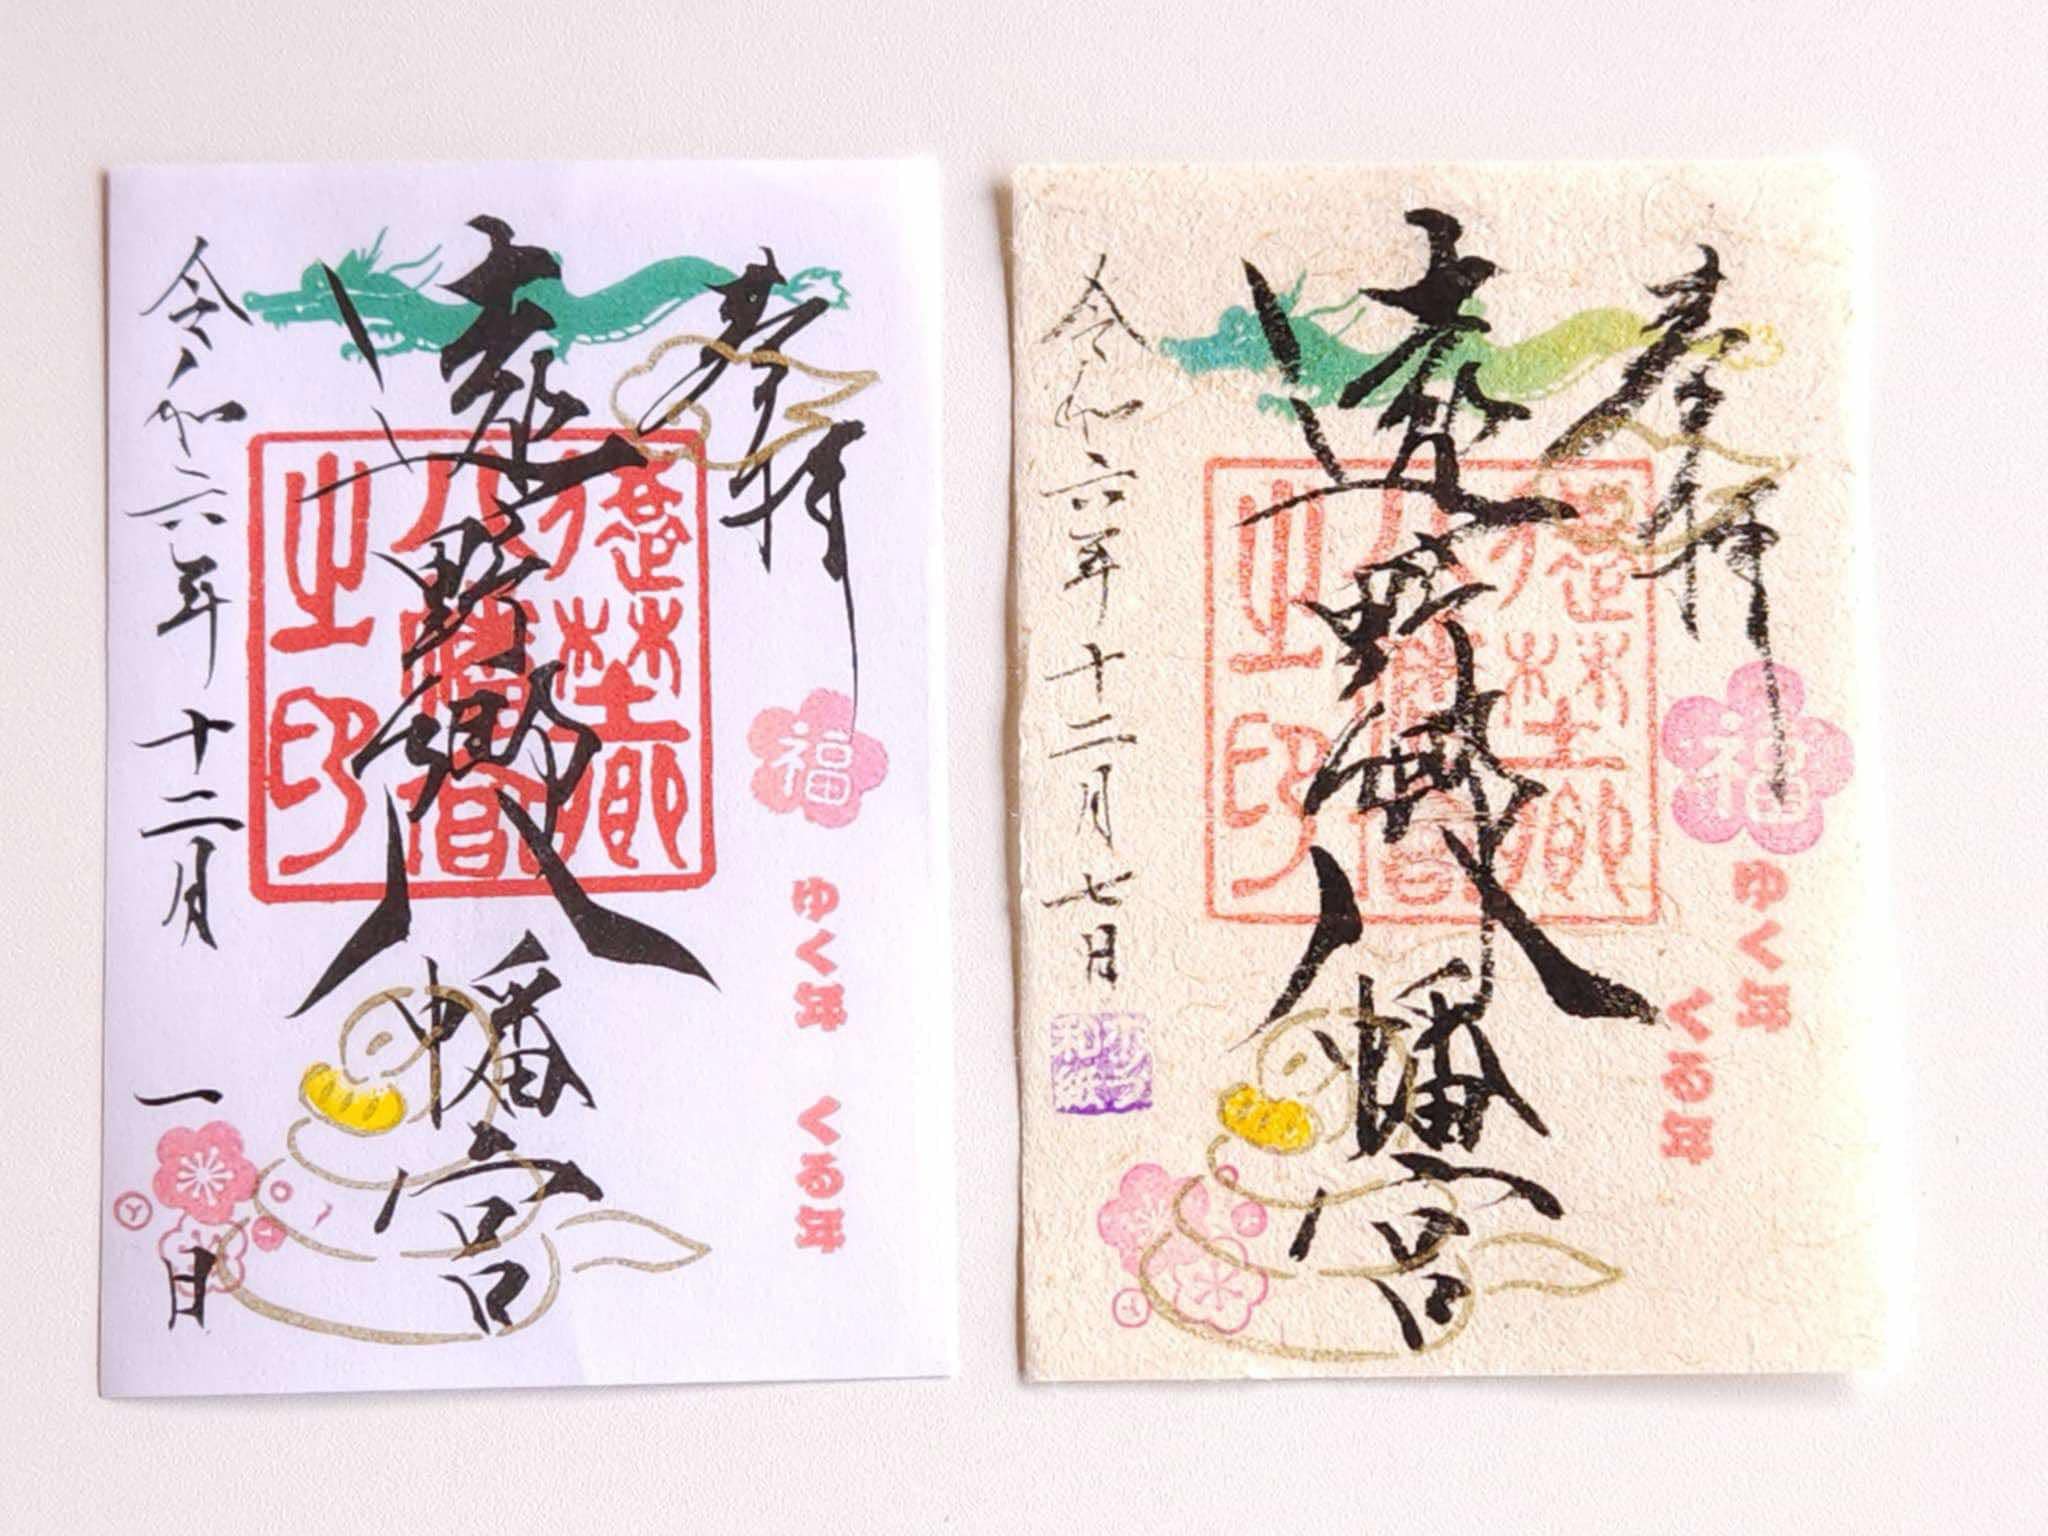 奉拝
遠野郷八幡宮
令和六年十二月一日
遠野郷
八幡宮
之印
福
ゆく年 くる年
奉拝
遠野郷八幡宮
令和六年十二月七日
遠野郷
八幡宮
之印
福
ゆく年
くる年
和紙